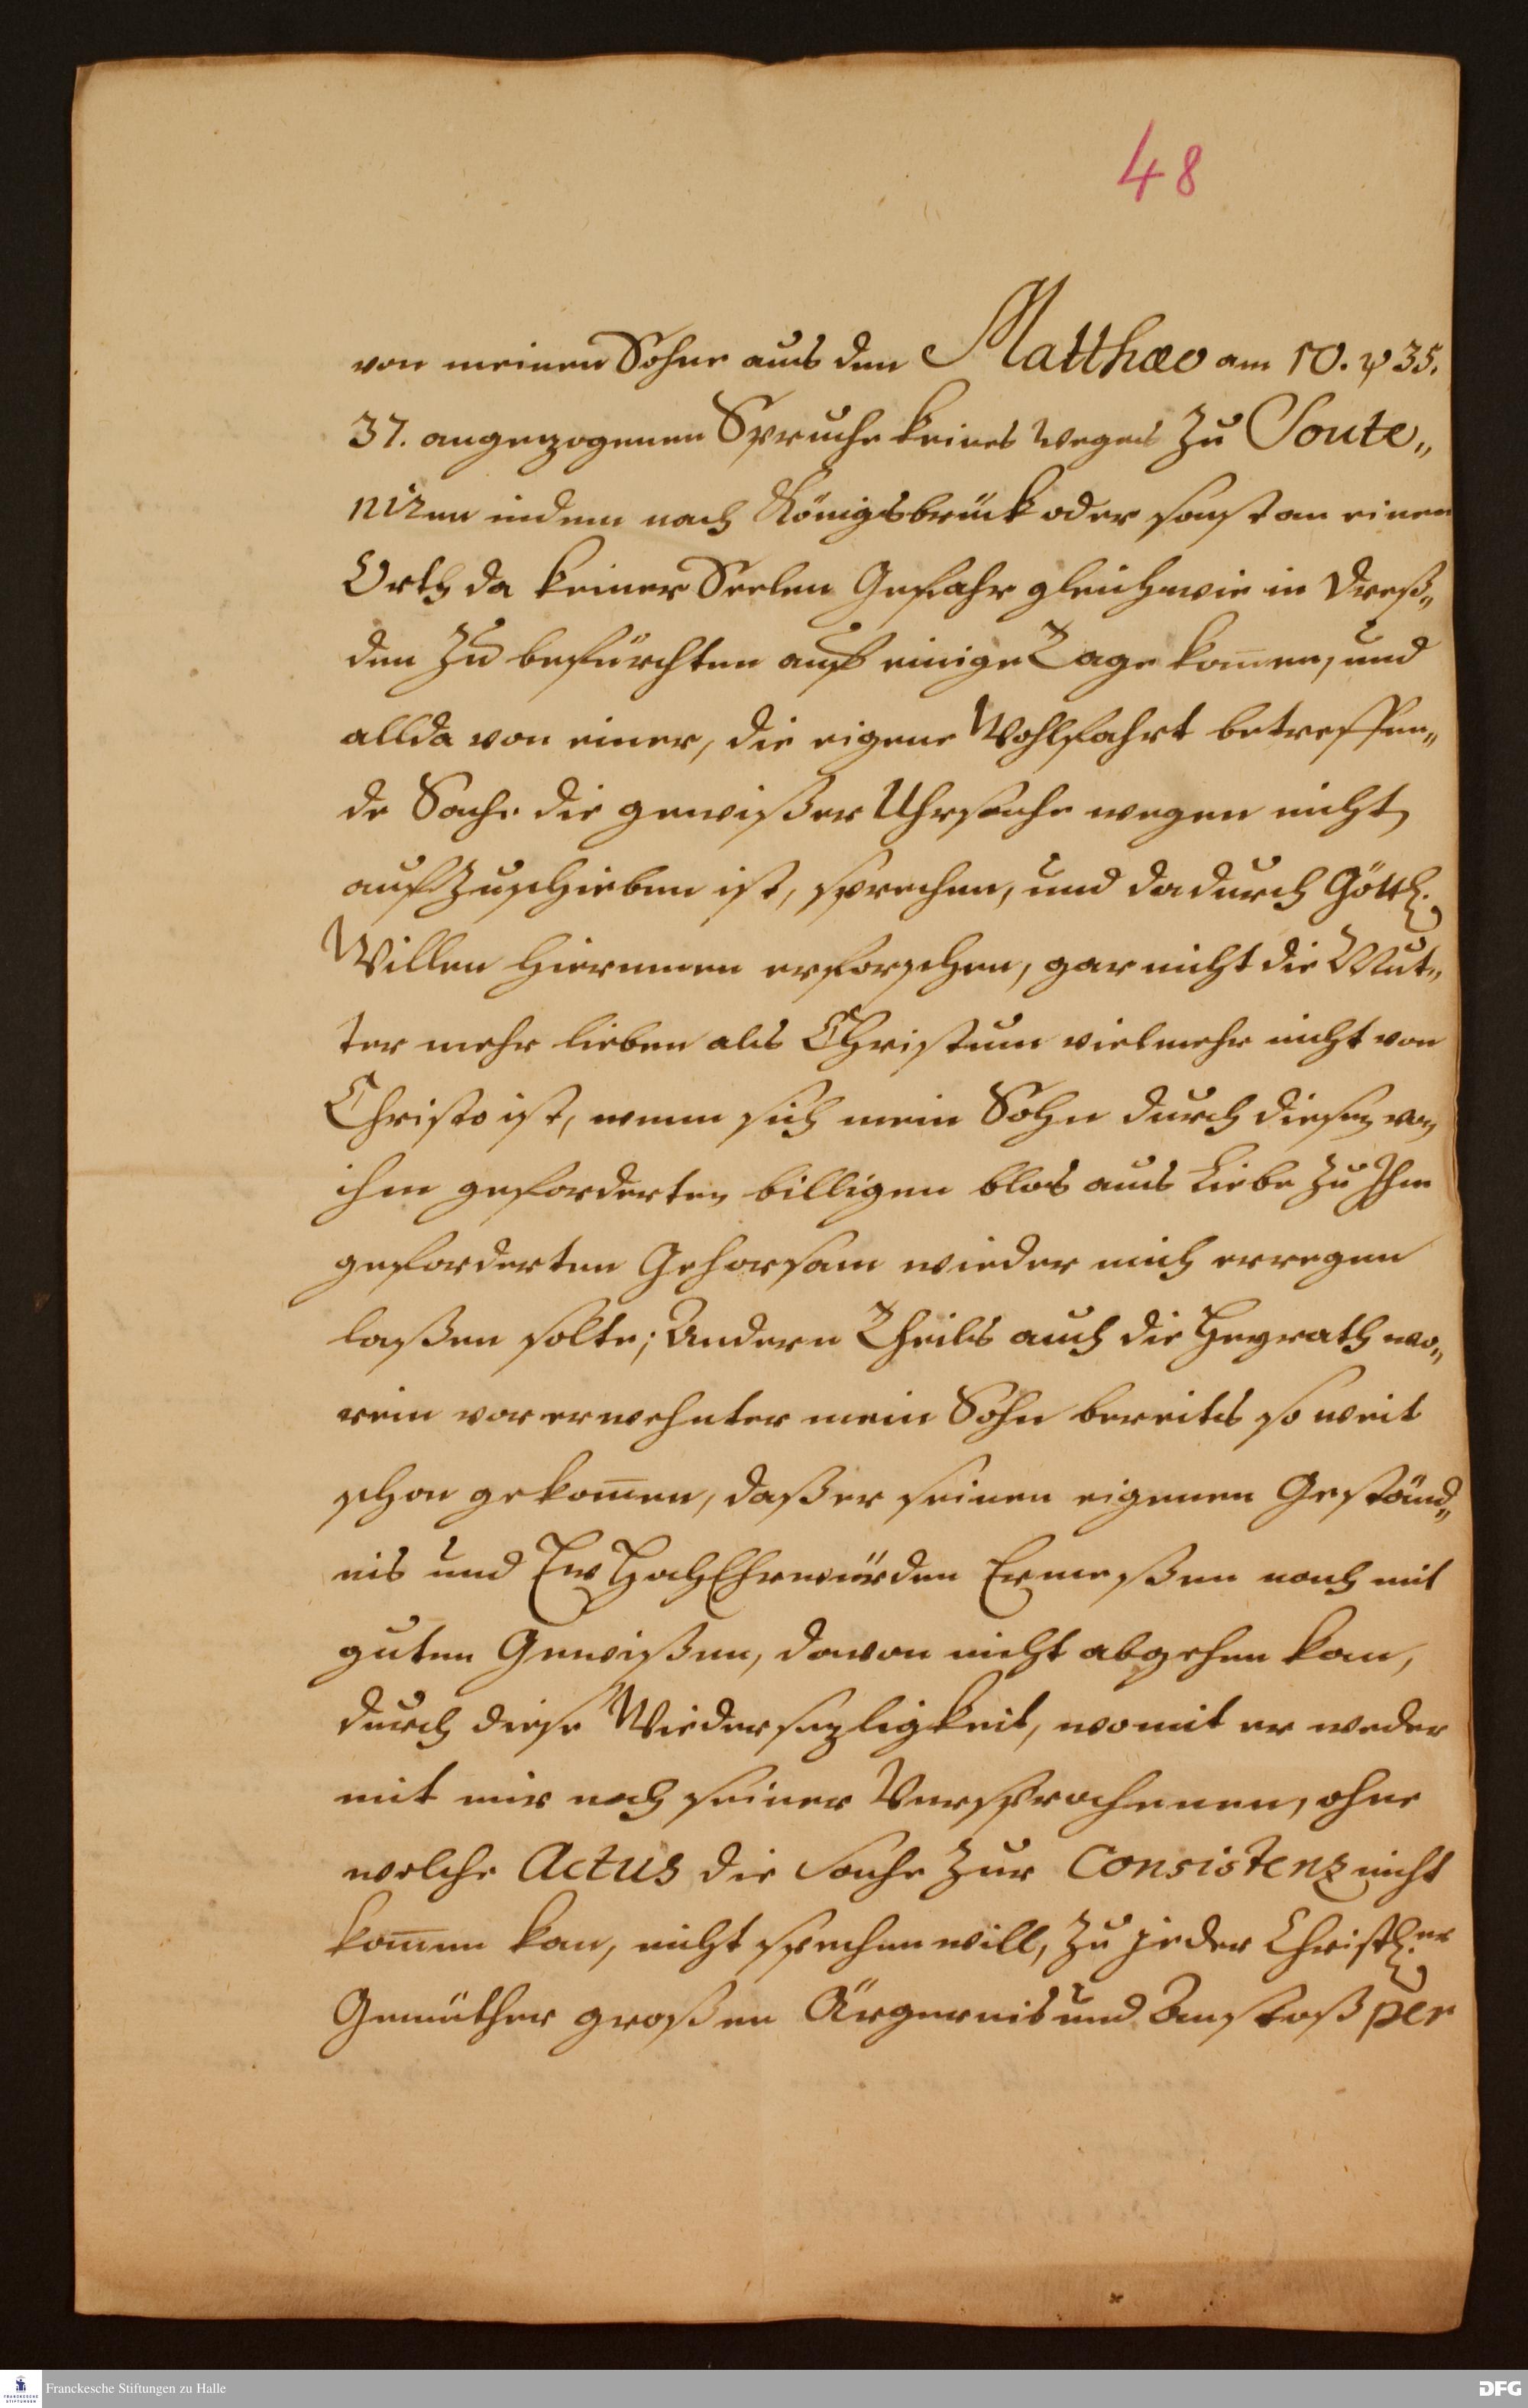 48
von meinen Sohne aus den Matthæo am 10. v 35.
37. angezogenen Spruche keines weges zu Soute„
niren indem nach Königsbrück oder sonst an einen
Orth da keiner Seelen Gefahr gleichwie in Dreß„
den zu befürchten auf einige Tage kom̅en, und
allda von einer, die eigene Wohlfahrt betreffen„
de Sache die gewißer Uhrsache wegen nicht
aufzuschieben ist, sprechen, und dadurch Göttl.
Willen hierinnen erforschen, gar nicht die Mut„
ter mehr lieben als Christum vielmehr nicht von
Christo ist, wenn sich mein Sohn durch diesen von
ihm geforderten billigen blos aus Liebe zu Ihm
geforderten Gehorsam wieder mich erregen
laßen solte; Andern Theils auch die Heyrath wo„
rein vor erwehnter mein Sohn bereits so weit
schon gekom̅en, daß er seinen eigenen Geständ„
nis und Ew HochEhrwürden Ermeßen nach mit
guten Gewißen, davon nicht abgehen kan,
durch diese Wiedersezligkeit, womit er weder
mit mir noch seiner Versprochenen, ohne
welche Actus die Sache zur Consistenz nicht
kom̅en kan, nicht sprechen will, zu jeder Christl.er
Gemüther großen Ärgernis und Anstoß per
Franckesche Stiftungen zu Halle
FRANCKESCHE
STIFTUNGEN
DFG